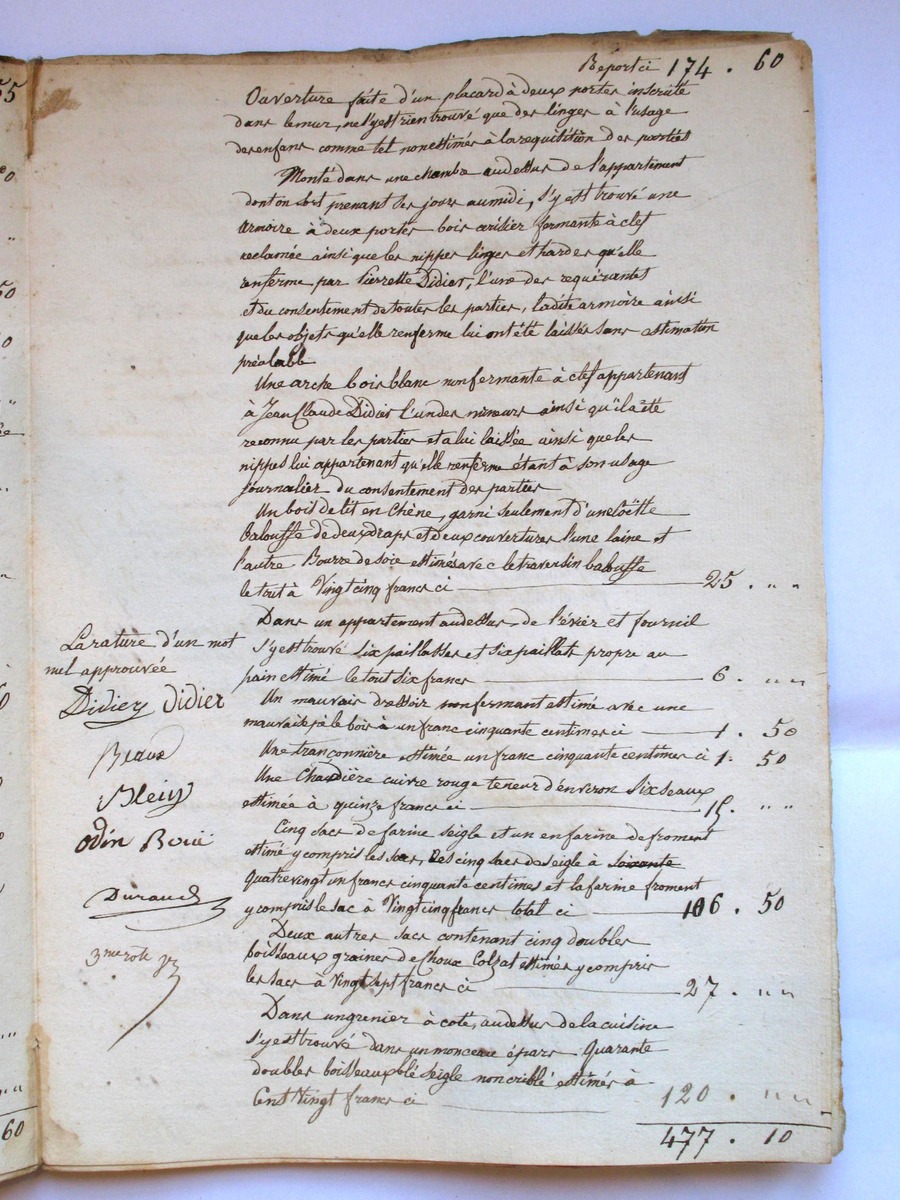 Report ci 174 . 60
Ouverture faite d'un placard à deux portes inscruté
dans le mur, ne s'y est rien trouvé que des linges à l'usage
des enfans comme tel non estimés à la requisition des parties
Monté dans une chambre au dessus de l'appartement
dont on sort prenant ses jours au midi, s'y est trouvé une
armoire à deux portes bois cérisier formante à clef
reclamée ainsi que les nippes linges et hardes qu'elle
renferme, par Pierrette Didier, l'une des requérantes
et du consentement de toutes les parties, ladite armoire ainsi
que les objets qu'elle renferme lui ont été laissés sans estimation
préalable
Une arche bois blanc non fermante à clef appartenant
à Jean Claude Didier l'un des mineurs ainsi qu'il a été
reconnu par les parties et a lui laissée ainsi que les
nippes lui appartenant qu'elle renferme étant à son usage
journalier du consentement des parties
Un bois de lit en Chêne, garni seulement d'une Coëtte
balouffe de deux draps et deux couvertures l'une laine et
l'autre Bourre de soie estimés avec le traversin balouffe
le tout à Vingt cinq francs ci 25 . " "
Dans un appartement au dessus de l'évier et fournil
s'y est trouvé six paillasses et six paillats propre au
pain estimé le tout six francs 6 . " "
Un mauvais dressoir non fermant estimé avec une
mauvaise le bois à un franc cinquante centimes ci 1 . 50
Une trançonnière estimée un franc cinquante centimes ci 1 . 50
Une Chaudière cuivre rouge teneur d'environ six seaux
estimée à quinze francs ci 15 . " "
Cinq sacs de farine seigle et un en farine de froment
estimé y compris les sacs, les cinq sacs de seigle à soixante
quatre vingt un francs cinquante centimes et la farine froment
y compris le sac à Vingt cinq francs total ci 106 . 50
Deux autres sacs contenant cinq doubles
boisseaux graines de Choux Colzat estimés y compris
les sacs à Vingt sept francs ci 27 . " "
Dans un grenier à coté, au dessus de la cuisine
s'y est trouvé dans un monceau épars Quarante
doubles boisseaux blé seigle non criblé estimés à
Cent Vingt francs ci 120 . " "
477 . 10
La rature d'un mot
nul approuvée
Didier Didier
Odin
Durand
3me role
55
60